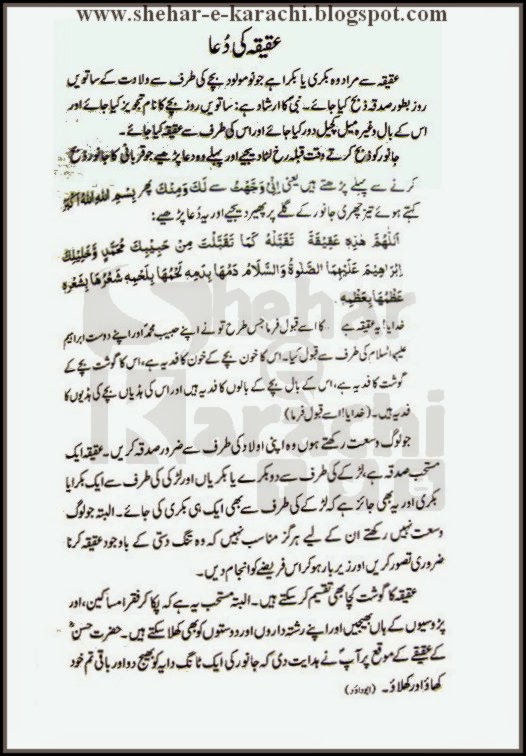 www.shehar-e-karachi.blogspot.com
عقیقہ کی دُعا
عقیقہ سے مراد وہ بکری یا بکرا ہے جو نومولود بچے کی طرف سے ولادت کے ساتویں
روز بطور صدقہ ذبح کیا جائے۔ نبیؐ کا ارشاد ہے: ساتویں روز بچے کا نام تجویز کیا جائے اور
اس کے بال وغیرہ میل کچیل دور کیا جائے اور اس کی طرف سے عقیقہ کیا جائے۔
جانور کو ذبح کرتے وقت قبلہ رخ لٹا دیجیے اور پہلے وہ دعا پڑھیے جو قربانی کا جانور ذبح
کرنے سے پہلے پڑھتے ہیں یعنی اِنِّیْ وَجَّهْتُ سے لَکَ وَمِنْکَ پھر بِسْمِ اللهِ اَللهُ اَکْبَرُ
کہتے ہوئے تیز چھری جانور کے گلے پر پھیر دیجیے اور یہ دعا پڑھیے:
اَللّٰهُمَّ هٰذِهٖ عَقِیْقَةُ تَقَبَّلْهُ کَمَا تَقَبَّلْتَ مِنْ حَبِیْبِکَ مُحَمَّدٍ وَّخَلِیْلِکَ
اِبْرَاهِیْمَ عَلَیْهِمَا الصَّلٰوةُ وَالسَّلَامُ دَمُهَا بِدَمِهٖ لَحْمُهَا بِلَحْمِهٖ شَعْرُهَا بِشَعْرِهٖ
عَظْمُهَا بِعَظْمِهٖ
خدایا! یہ عقیقہ ہے کا اسے قبول فرما جس طرح تو نے اپنے حبیب محمدؐ اور اپنے دوست ابراہیم
علیہما السلام کی طرف سے قبول کیا۔ اس کا خون بچے کے خون کا فدیہ ہے، اس کا گوشت بچے کے
گوشت کا فدیہ ہے، اس کے بال بچے کے بالوں کا فدیہ ہیں اور اس کی ہڈیاں بچے کی ہڈیوں کا
فدیہ ہیں۔ (خدایا! اسے قبول فرما)
جو لوگ وسعت رکھتے ہوں وہ اپنی اولاد کی طرف سے ضرور صدقہ کریں۔ عقیقہ ایک
مستحب صدقہ ہے، لڑکے کی طرف سے دو بکرے یا بکریاں اور لڑکی کی طرف سے ایک بکرا یا
بکری اور یہ بھی جائز ہے کہ لڑکے کی طرف سے بھی ایک ہی بکری کی جائے۔ البتہ جو لوگ
وسعت نہیں رکھتے ان کے لیے ہرگز مناسب نہیں کہ وہ تنگ دستی کے باوجود عقیقہ کرنا
ضروری تصور کریں اور زیر بار ہو کر اس فریضے کو انجام دیں۔
عقیقہ کا گوشت کچا بھی تقسیم کر سکتے ہیں۔ البتہ مستحب یہ ہے کہ پکا کر فقرا مساکین، اور
پڑوسیوں کے ہاں بھیجیں اور اپنے رشتہ داروں اور دوستوں کو بھی کھلا سکتے ہیں۔ حضرت حسنؓ
کے عقیقے کے موقع پر آپؐ نے ہدایت دی کہ جانور کی ایک ٹانگ دایہ کو بھیج دو اور باقی تم خود
کھاؤ اور کھلاؤ۔ (ابوداؤد)
Shehar
e
Karachi